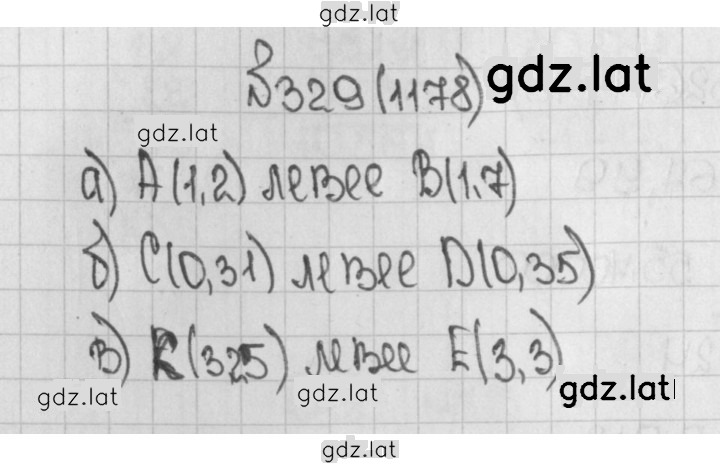 gdz.lat
№329(1178) gdz.lat
gdz.lat
а) A(1,2) левее B(1,7)
б) C(0,31) левее D(0,35)
в) K(3,25) левее E(3,3)
gdz.lat gdz.lat gdz.lat
gdz.lat